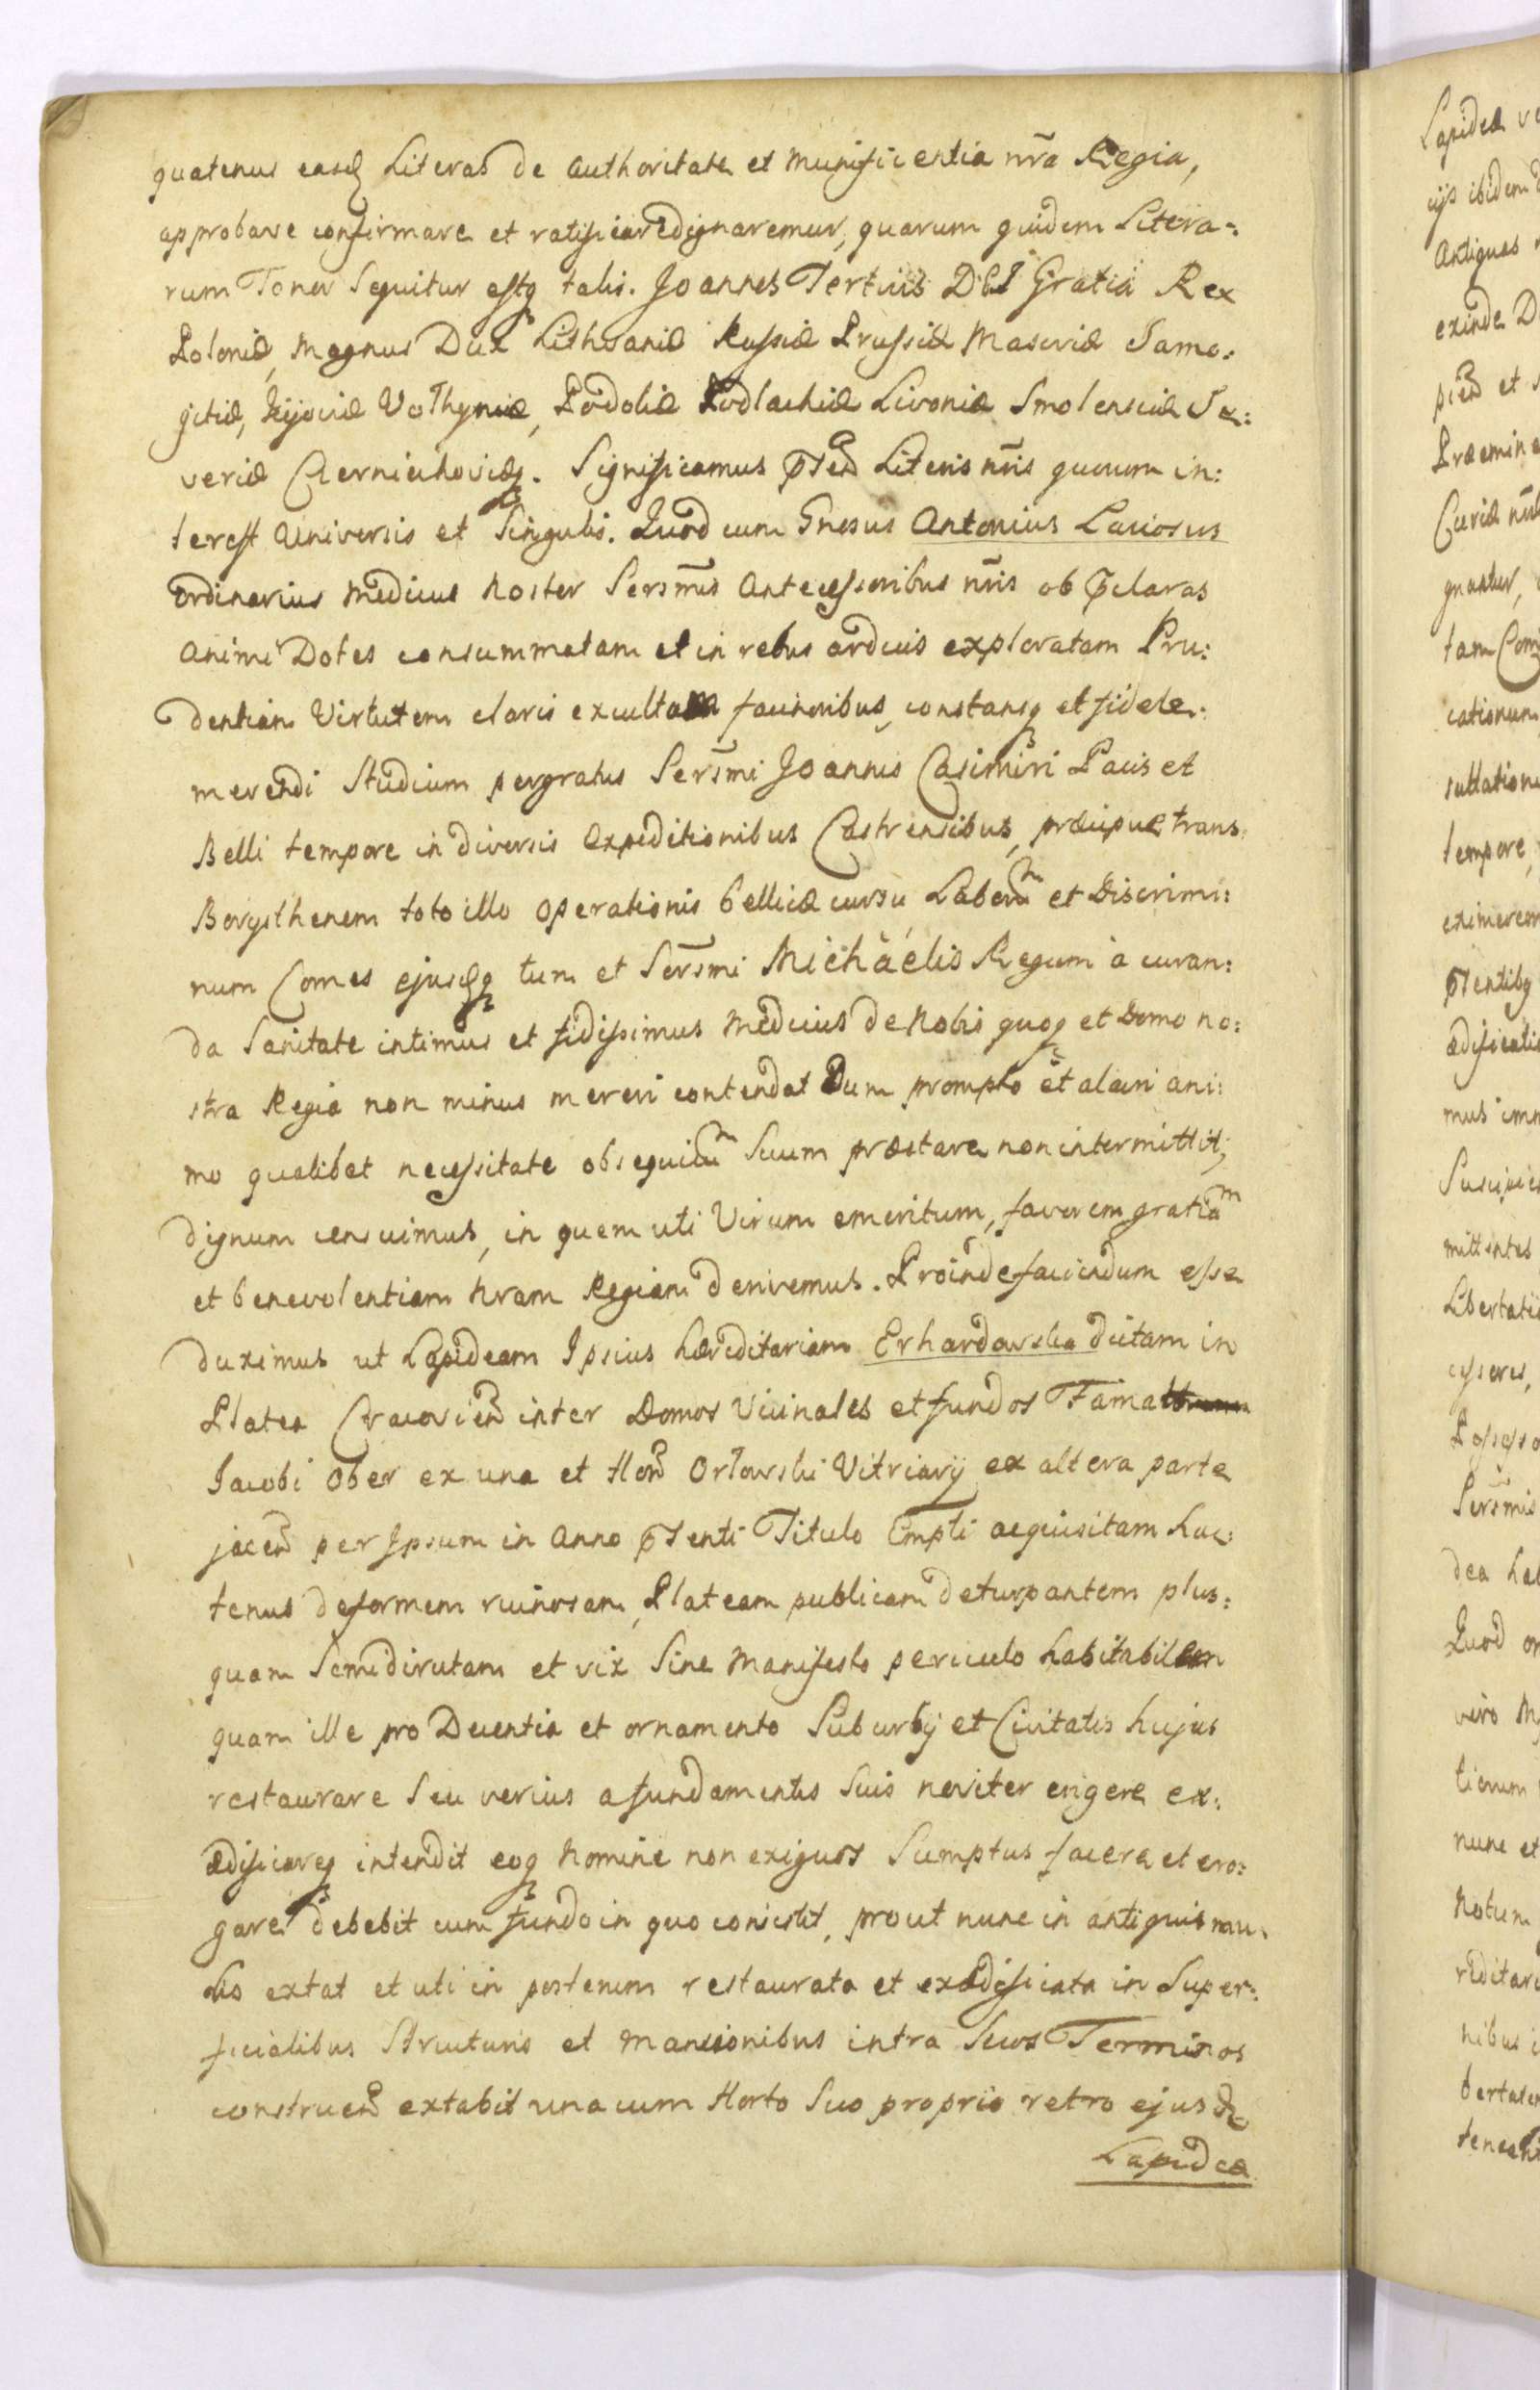 quatenus easd Literas de authoritate et munificentia nra Regia,
approbare confirmare et ratificare dignaremur, quarum quidem Litera:
rum Tonor Sequitur estq talis. Joannes Tertius DEI Gratia Rex
Poloniæ, Magnus Dux Lithvaniæ Russiæ Prussiæ Masoviæ Samo:
gitiæ, Kijoviæ Volhyniæ, Podoliæ Podlachiæ Livoniæ Smolensciæ Se:
veriæ Czerniechoviæq. Significamus pnsen Literis nris quorum in:
terest universis et Singulis. Quod cum Gnosus Antonius Lauiosus
ordinarius Medicus Noster Sersmis Antecessoribus nris ob pclaras
animi Dotes consummatam et in rebus arduis exploratam Pru:
dentiam Virtutem claris excultam facinoribus, constansq et fidele:
merendi Studium pergratus Sersmi Joannis Casimiri Pacis et
Belli tempore in diversis Expeditionibus Castrensibus, præcipue trans:
Borysthenem toto illo operationis bellicæ cursu Laborum et Discrimi:
num Comes ejusdq tum et Sersmi Michaëlis Regum à curan:
da Sanitate intimus et fidissimus Medicus de Nobis quoq et Domo no:
stra Regia non minus mereri contendat Dum prompto et alacri ani:
mo qualibet necessitate obsequium Suum præstare non intermittit;
dignum censuimus, in quem uti Virum emeritum, favorem gratiam
et benevolentiam Nram Regiam derivemus. Proinde faciendum esse
duximus ut Lapideam Ipsius hæreditariam Erhardowska dictam in
Platea Cracovien inter Domos Vicinales et fundos Fama
Jacobi Ober ex una et Hon Orłowski Vitriarij ex altera parte
jacen per Ipsum in Anno pnsenti Titulo Empti acquisitam hac:
tenus deformem ruinosam, Plateam publicam deturpantem plus:
quam Semidirutam et vix Sine Manifesto periculo habitabilem
quam ille pro Decentia et ornamento Suburbij et Civitatis hujus
restaurare Seu verius a fundamentis Suis noviter erigere ex:
ædificareq intendit eoq Nomine non exiguos Sumptus facere et ero:
gare debebit cum fundo in quo consistit, prout nunc in antiquis mu:
ris extat et uti in posterum restaurata et exædificata in Super:
ficialibus Structuris et Mansionibus intra Suos Terminos
construen extabit una cum Horto Suo proprio retro ejusd
Lapidea